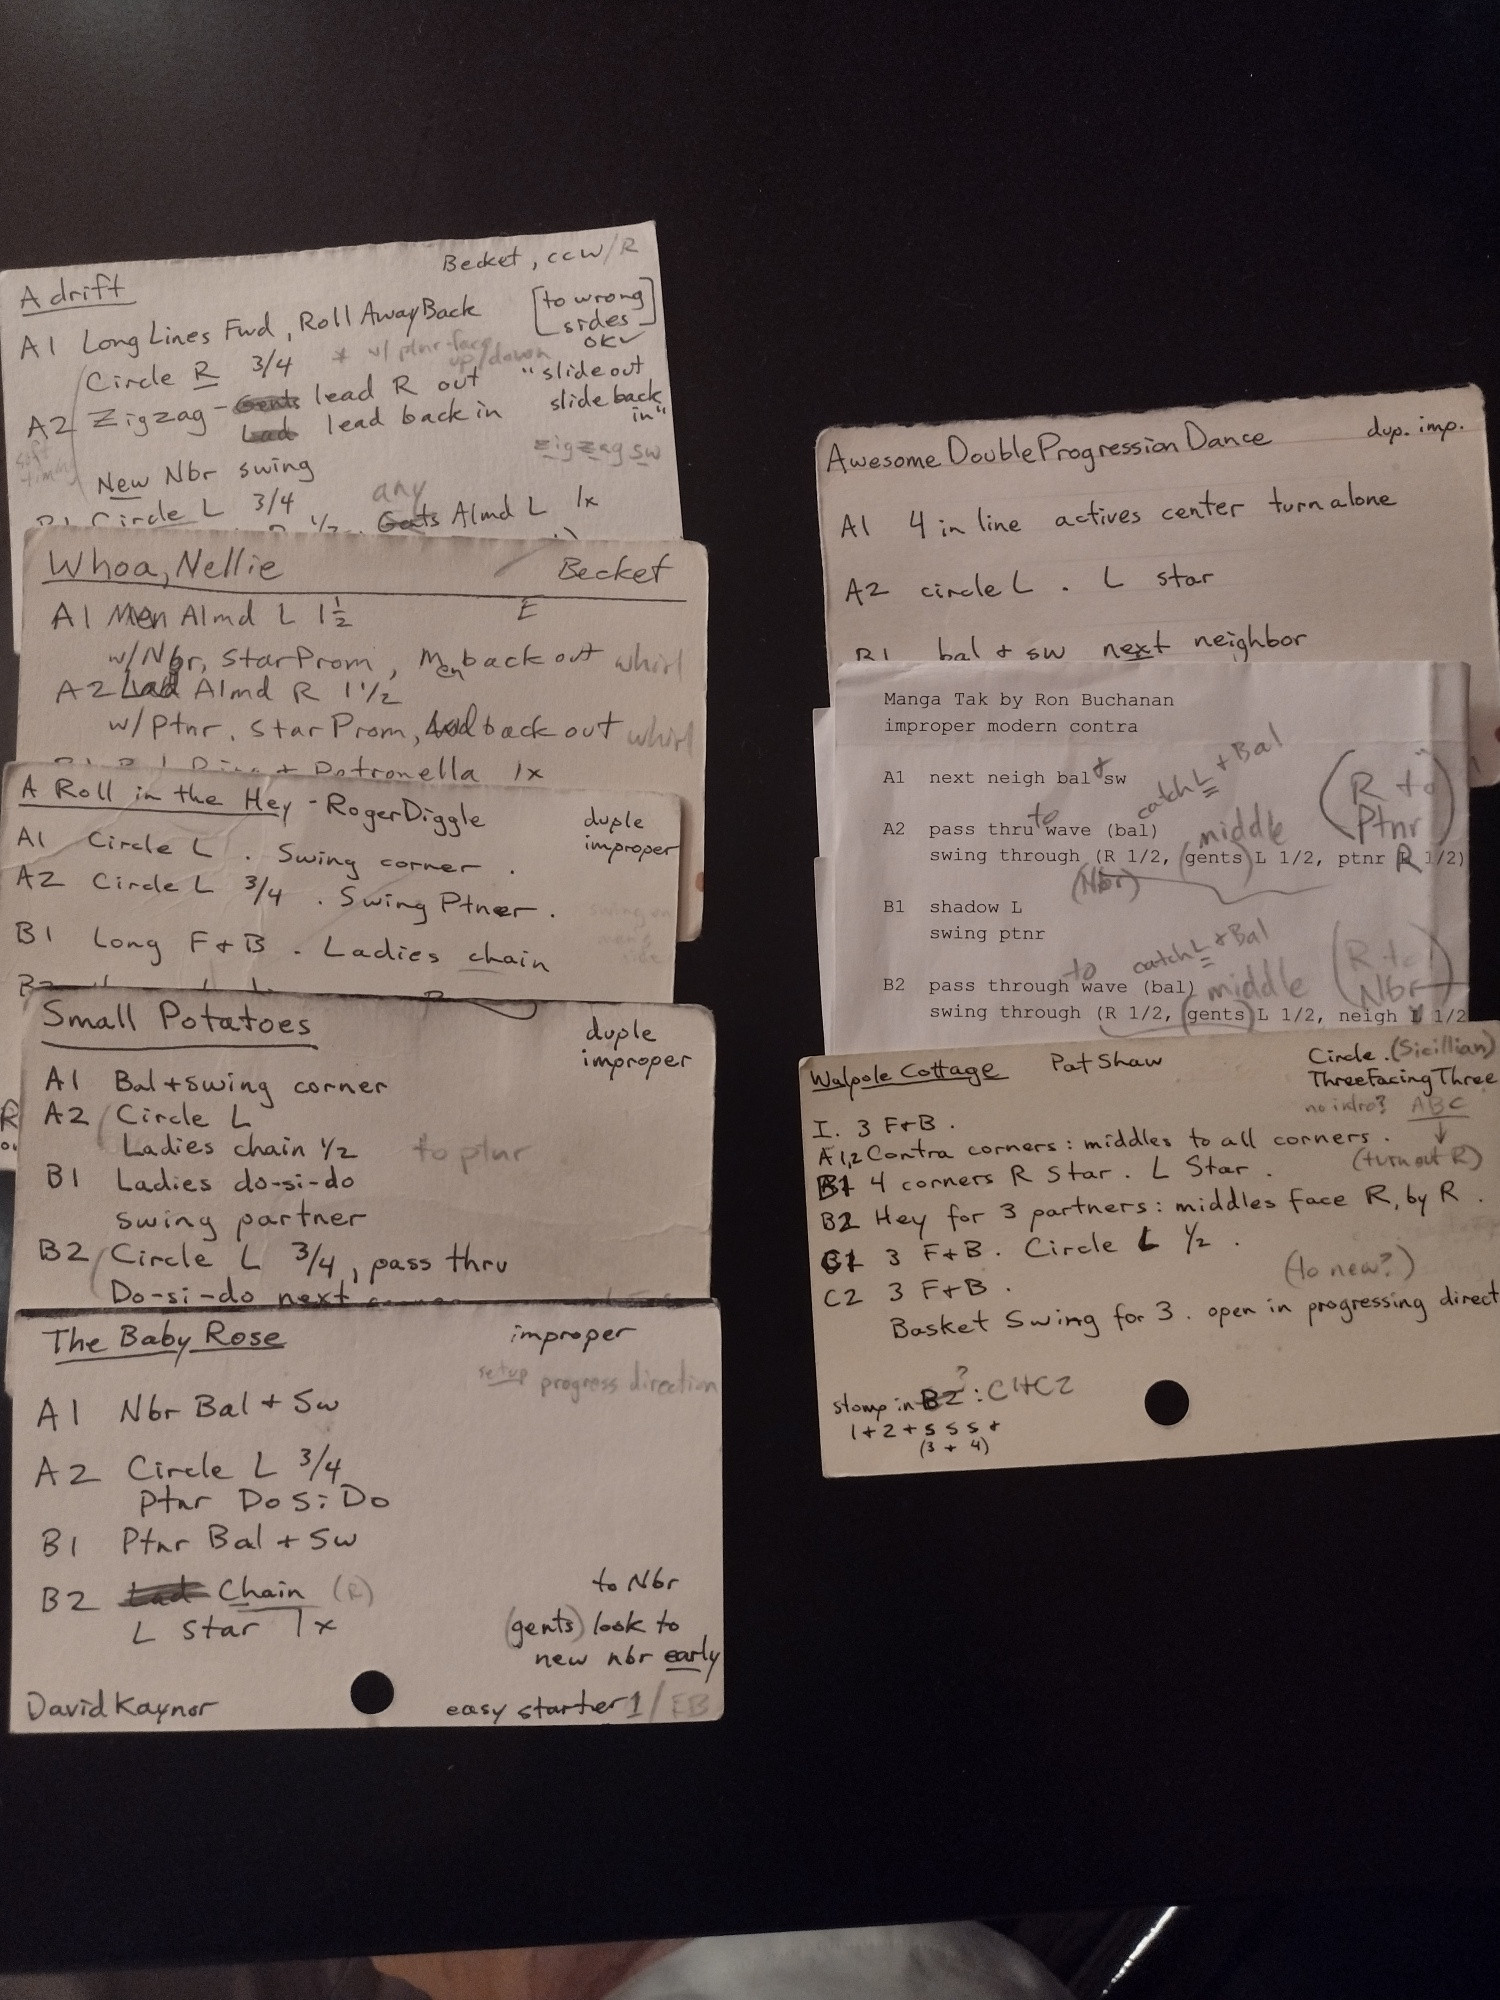 Adrift
Becket, ccw/R
A1 Long Lines Fwd, Roll Away Back [to wrong sides]
OK✓
Circle R 3/4 * w/ ptnr-face up/down
A2 Zigzag - lead R out "slide out
lead back in slide back in"
soft timing
zigzag sw
New Nbr swing
B1 Circle L 3/4 any
1/2, Gents Almd L 1x
Whoa, Nellie
Becket
A1 Men Almd L 1 1/2 E
w/Nbr, Star Prom, Men back out whirl
A2 Lad Almd R 1 1/2
w/Ptnr, Star Prom, Lad back out whirl
Petronella 1x
A Roll in the Hey - Roger Diggle
duple
improper
A1 Circle L . Swing corner .
A2 Circle L 3/4 . Swing Ptner .
swing on men's side
B1 Long F+B . Ladies chain
B2
Small Potatoes
duple
improper
A1 Bal + swing corner
A2 Circle L
Ladies chain 1/2 to ptnr
B1 Ladies do-si-do
swing partner
B2 Circle L 3/4, pass thru
Do-si-do next
The Baby Rose
improper
setup progress direction
A1 Nbr Bal + Sw
A2 Circle L 3/4
Ptnr Do Si Do
B1 Ptnr Bal + Sw
B2 Lad Chain (R) to Nbr
L Star 1x (gents) look to
new nbr early
David Kaynor
easy starter 1/EB
Awesome Double Progression Dance
dup. imp.
A1 4 in line actives center turn alone
A2 circle L . L star
B1 bal + sw next neighbor
Manga Tak by Ron Buchanan
improper modern contra
A1 next neigh bal + sw
catch L + Bal
(R to Ptnr)
A2 pass thru to wave (bal)
middle
swing through (R 1/2, (gents) L 1/2, ptnr R 1/2)
(Nbr)
B1 shadow L
swing ptnr
catch L + Bal
(R to Nbr)
B2 pass through to wave (bal) middle
swing through (R 1/2, (gents) L 1/2, neigh 1/2
Walpole Cottage Pat Shaw
Circle. (Sicillian)
Three Facing Three
no intro? ABC
I. 3 F+B .
A1,2 Contra corners: middles to all corners .
(turn out R)
B1 4 corners R Star . L Star .
B2 Hey for 3 partners: middles face R, by R .
C1 3 F+B . Circle L 1/2 .
(to new?)
C2 3 F+B .
Basket Swing for 3 . open in progressing direct
stomp in B2? : C1+C2
1 + 2 + s s s +
(3 + 4)